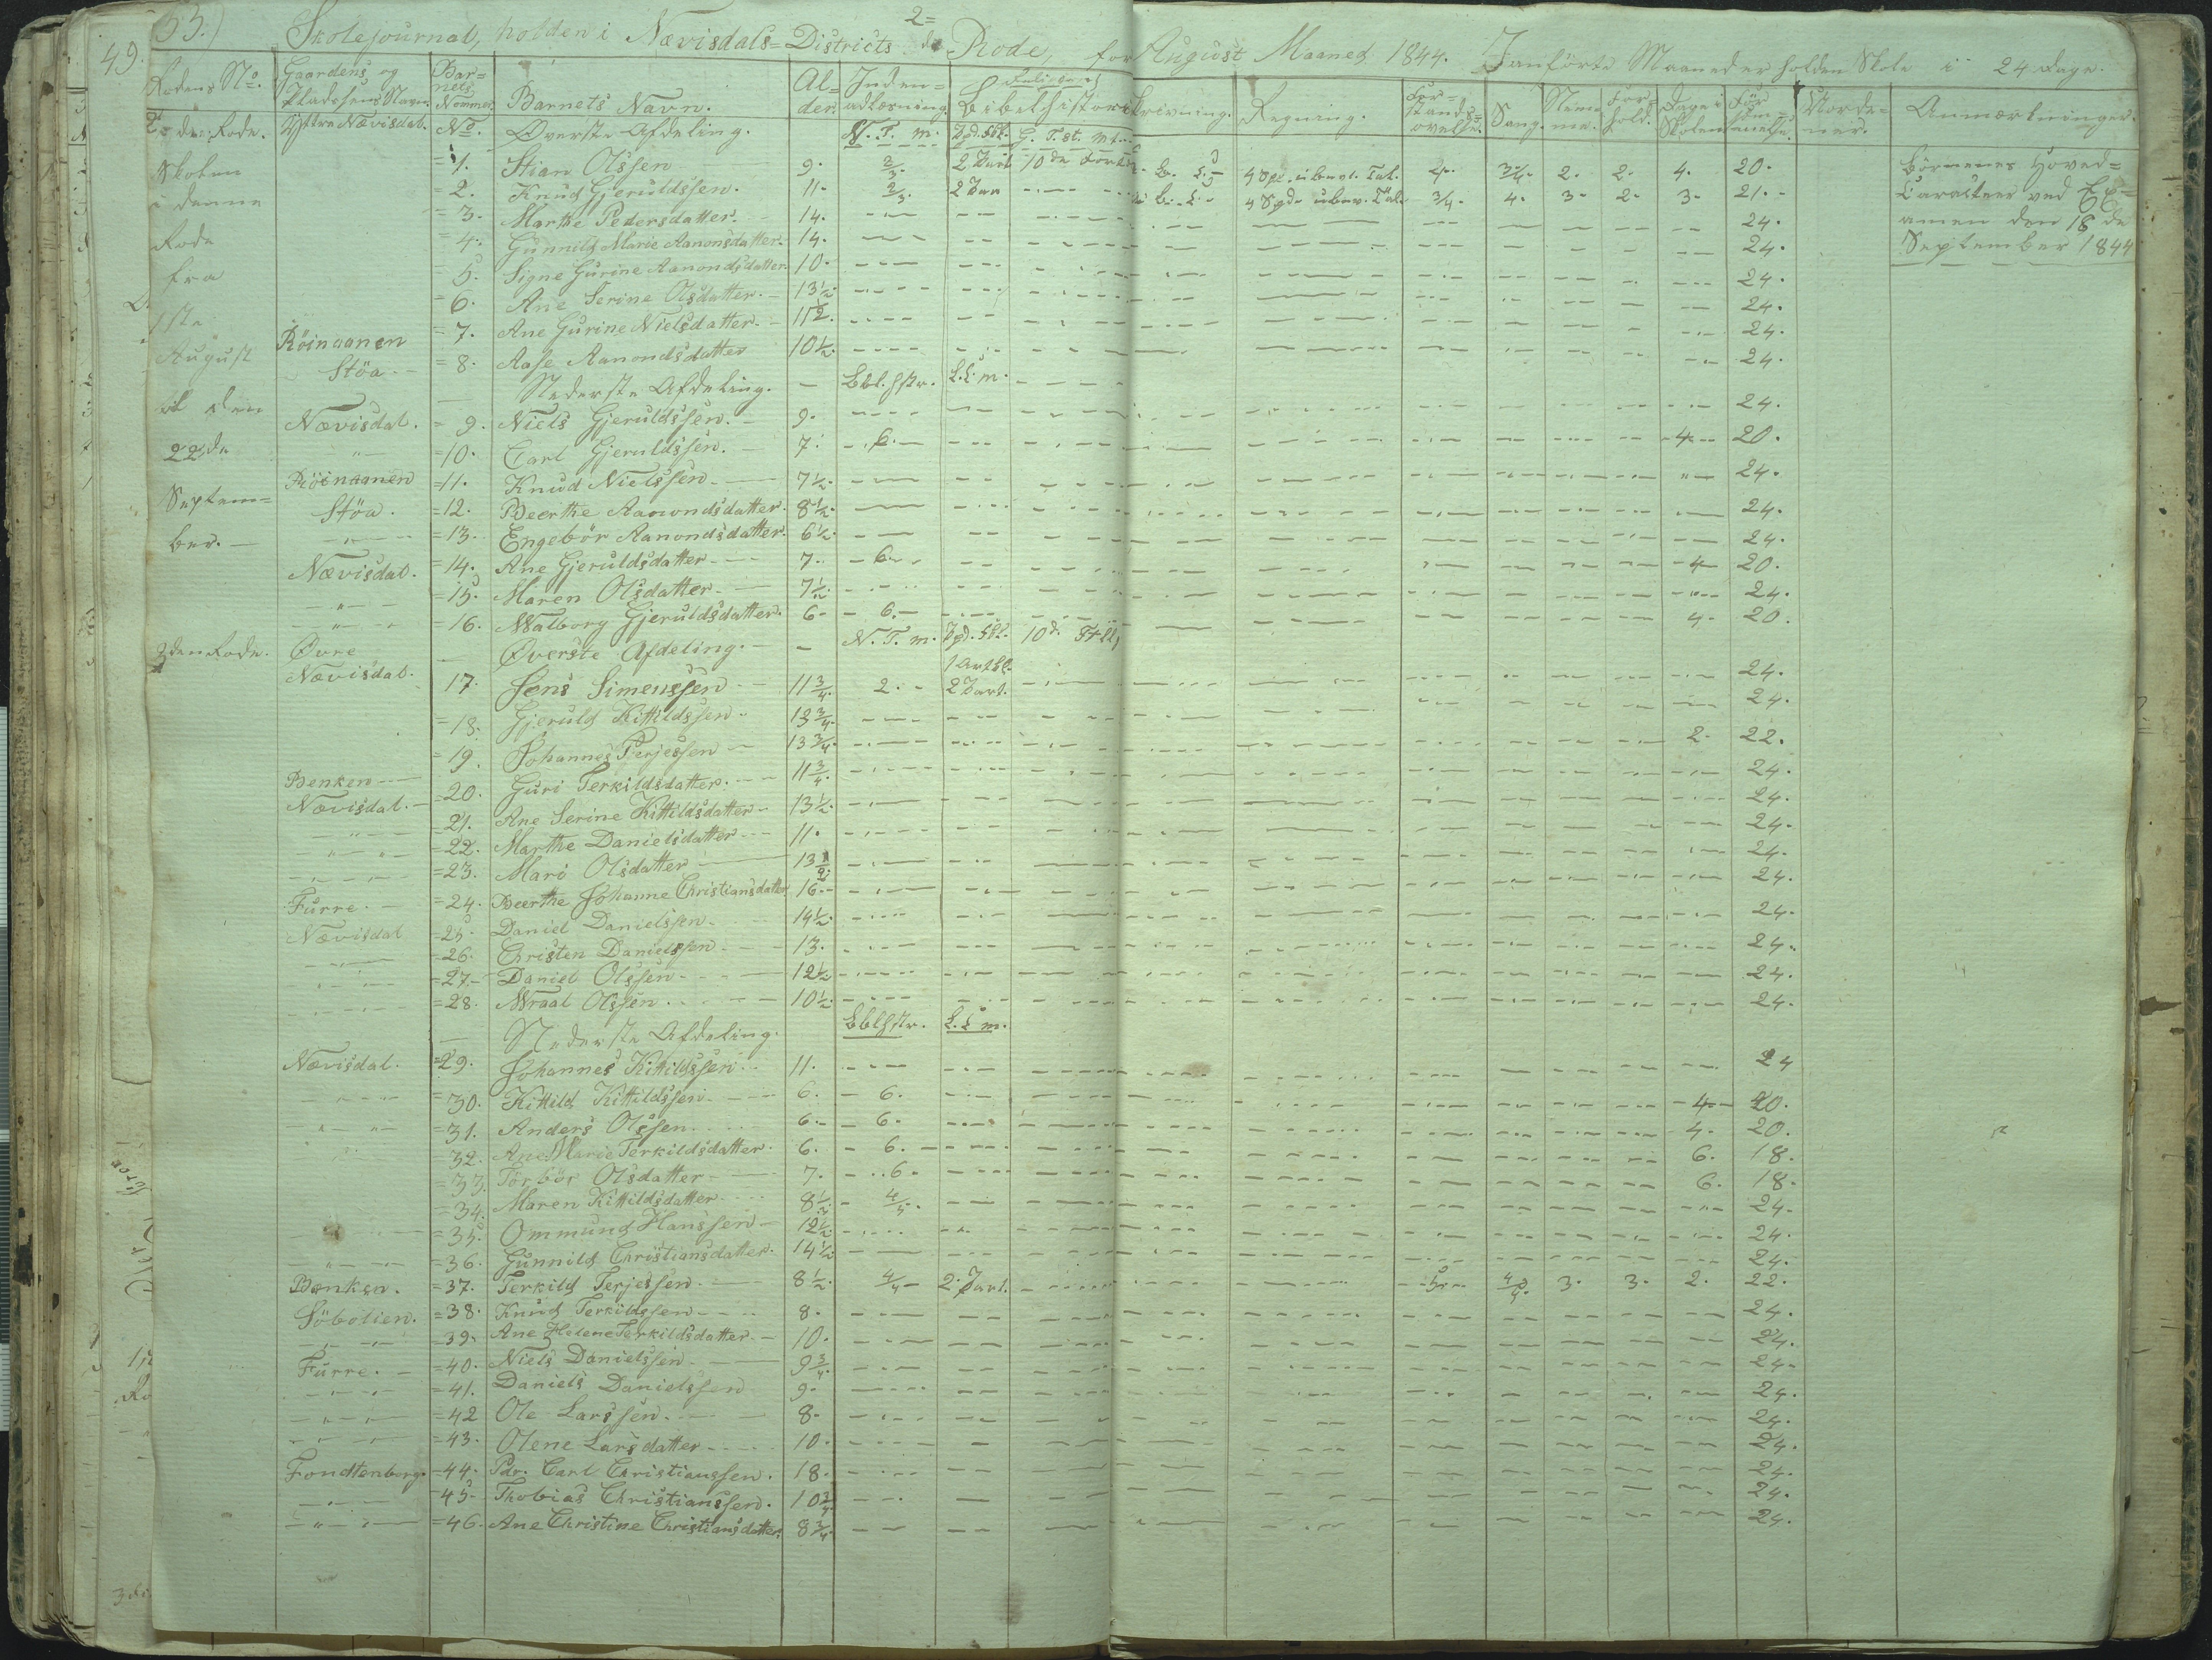 53.) Skolejournal, holden i Nævisdals-Districts 2de Rode, for August Maaned 1844. I anførte Maaneder holden Skole i 24 Dage.
Rodens No. Gaardens og Pladsens Navn. Barnets Nommer. Barnets Navn. Alder. Indenadlæsning. Religion og Bibelhistorie Skrivning. Regning. Forstandsøvelse. Sang. Nemme. Forhold. Dage i Skolen Forsømmelse. Anmærkninger.
2den Rode. Yttre Nævisdal. No. Øverste Afdeling. N. T. m.
Skolen = 1. Stian Olssen 9. 2/3. 2 Part 10de 4. 3/4. 2. 2. 4. 20. Børnenes Hoved=
i denne = 2. Knud Gjeruldssen. 11. 2/3. 2 Par 3/4. 4. 3. 2. 3. 21. Caracteer ved Ex=
= 3. Marthe Pedersdatter. 14. 24. amen den 18de
Rode = 4. Gunnild Marie Aanonsdatter. 14. 24. September 1844
fra = 5. Signe Gurine Aanondsdatter. 10. 24.
= 6. Ane Serine Olsdatter. 13 1/2. 24.
1ste = 7. Ane Gurine Nielsdatter. 11 1/2. 24.
August Röinaanen Stöa = 8. Aase Aanondsdatter 10 1/2. 24.
Nederste Afdeling. Bbl.hstr. L.L.m.
til den Nævisdal. = 9. Niels Gjeruldssen. 9. 24.
22de = 10. Carl Gjeruldssen. 7. 6. 4. 20.
Röinaanen = 11. Knud Nielssen 7 1/2. 24.
Septem= Stöa. = 12. Beerthe Aanondsdatter. 8 1/2. 24.
ber. = 13. Engebör Aanondsdatter. 6 1/2. 24.
Nævisdal. = 14. Ane Gjeruldsdatter 7. 6. 4. 20.
= 15. Maren Olsdatter 7 1/2. 24.
= 16. Walborg Gjeruldsdatter. 6. 6. 4. 20.
2den Rode. Øvre Øverste Afdeling. N. T. m. 10de
Nævisdal. 17. Jens Simenssen 11 3/4. 2. 2 Part. 24.
= 18. Gjeruld Kittildssen 12 3/4. 24.
= 19. Johannes Terjessen 13 3/4. 2. 22.
Benken = 20. Guri Terkildsdatter. 11 3/4. 24.
Nævisdal. = 21. Ane Serine Kittildsdatter 13 1/2. 24.
= 22. Marthe Danielsdatter 11. 24.
= 23. Mari Olsdatter 13 1/2. 24.
Furre. = 24. Beerthe Johanne Christiansdatter 16. 24.
Nævisdal = 25. Daniel Danielssen 14 1/2. 24.
= 26. Christen Danielssen 13. 24.
= 27. Daniel Olssen 12 1/2. 24.
= 28. Wraal Olssen 10 1/2. 24.
Nederste Afdeling. Bblhstr. L.L m.
Nævisdal. = 29. Johannes Kittildssen 11. 24
= 30. Kittild Kittildssen 6. 6. 4. 20.
= 31. Anders Olssen 6. 6. 4. 20.
= 32. Ane Marie Terkildsdatter 6. 6. 6. 18.
= 33. Torbör Olsdatter 7. 6. 6. 18.
= 34. Maren Kittildsdatter 8 1/2. 24.
= 35. Ommund Hanssen 12 1/2. 24.
= 36. Gunnild Christiansdatter. 14 1/2. 24.
Benken. = 37. Terkild Terjessen. 8 1/2. 2. Part. 3. 3. 2. 22.
Söbolien. = 38. Knud Terkildssen 8. 24.
= 39. Ane Helene Terkildsdatter. 10. 24.
Furre. = 40. Niels Danielssen 9 3/4. 24.
= 41. Daniels Danielssen 9. 24.
= 42 Ole Larssen. 8. 24.
= 43. Olene Larsdatter 10. 24.
Fondtenberg. = 44. Pdr. Carl Christianssen. 18. 24.
= 45. Thobias Christianssen. 10 3/4. 24.
= 46. Ane Christine Christiansdatter. 8 3/4. 24.